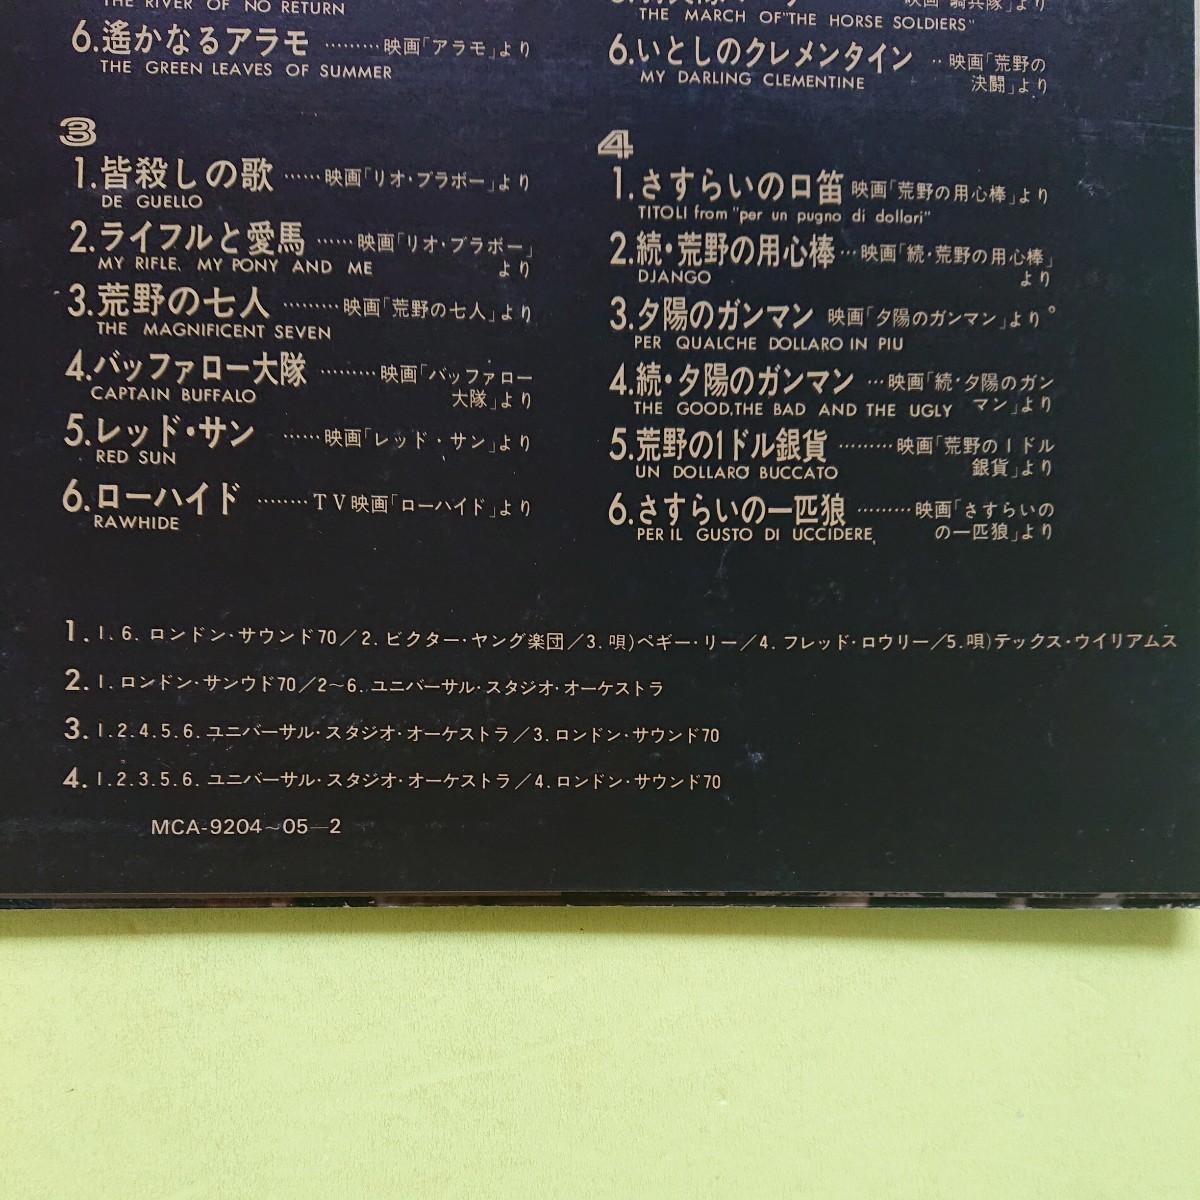 THE RIVER OF NO RETURN
6.遙かなるアラモ ………映画「アラモ」より
THE GREEN LEAVES OF SUMMER
THE MARCH OF"THE HORSE SOLDIERS"
6.いとしのクレメンタイン ‥映画「荒野の
MY DARLING CLEMENTINE 決闘」より
3
1.皆殺しの歌 ……映画「リオ・ブラボー」より
DE GUELLO
2.ライフルと愛馬 ……映画「リオ・ブラボー」
MY RIFLE, MY PONY AND ME より
3.荒野の七人 ………映画「荒野の七人」より
THE MAGNIFICENT SEVEN
4.バッファロー大隊 ………映画「バッファロー
CAPTAIN BUFFALO 大隊」より
5.レッド・サン ……映画「レッド・サン」より
RED SUN
6.ローハイド ………TV映画「ローハイド」より
RAWHIDE
4
1.さすらいの口笛 映画「荒野の用心棒」より
TITOLI from "per un pugno di dollari"
2.続・荒野の用心棒…映画「続・荒野の用心棒」
DJANGO より
3.夕陽のガンマン 映画「夕陽のガンマン」より°
PER QUALCHE DOLLARO IN PIU
4.続・夕陽のガンマン …映画「続・夕陽のガン
THE GOOD,THE BAD AND THE UGLY マン」より
5.荒野の1ドル銀貨 ………映画「荒野の1ドル
UN DOLLARO BUCCATO 銀貨」より
6.さすらいの一匹狼 ………映画「さすらいの
PER IL GUSTO DI UCCIDERE, の一匹狼」より
1. 1. 6. ロンドン・サウンド70/2. ビクター・ヤング楽団/3. 唄)ペギー・リー/4. フレッド・ロウリー/5. 唄)テックス・ウイリアムス
2. 1. ロンドン・サンウド70/2〜6. ユニバーサル・スタジオ・オーケストラ
3. 1. 2. 4. 5. 6. ユニバーサル・スタジオ・オーケストラ/3. ロンドン・サウンド70
4. 1. 2. 3. 5. 6. ユニバーサル・スタジオ・オーケストラ/4. ロンドン・サウンド70
MCA-9204~05—2